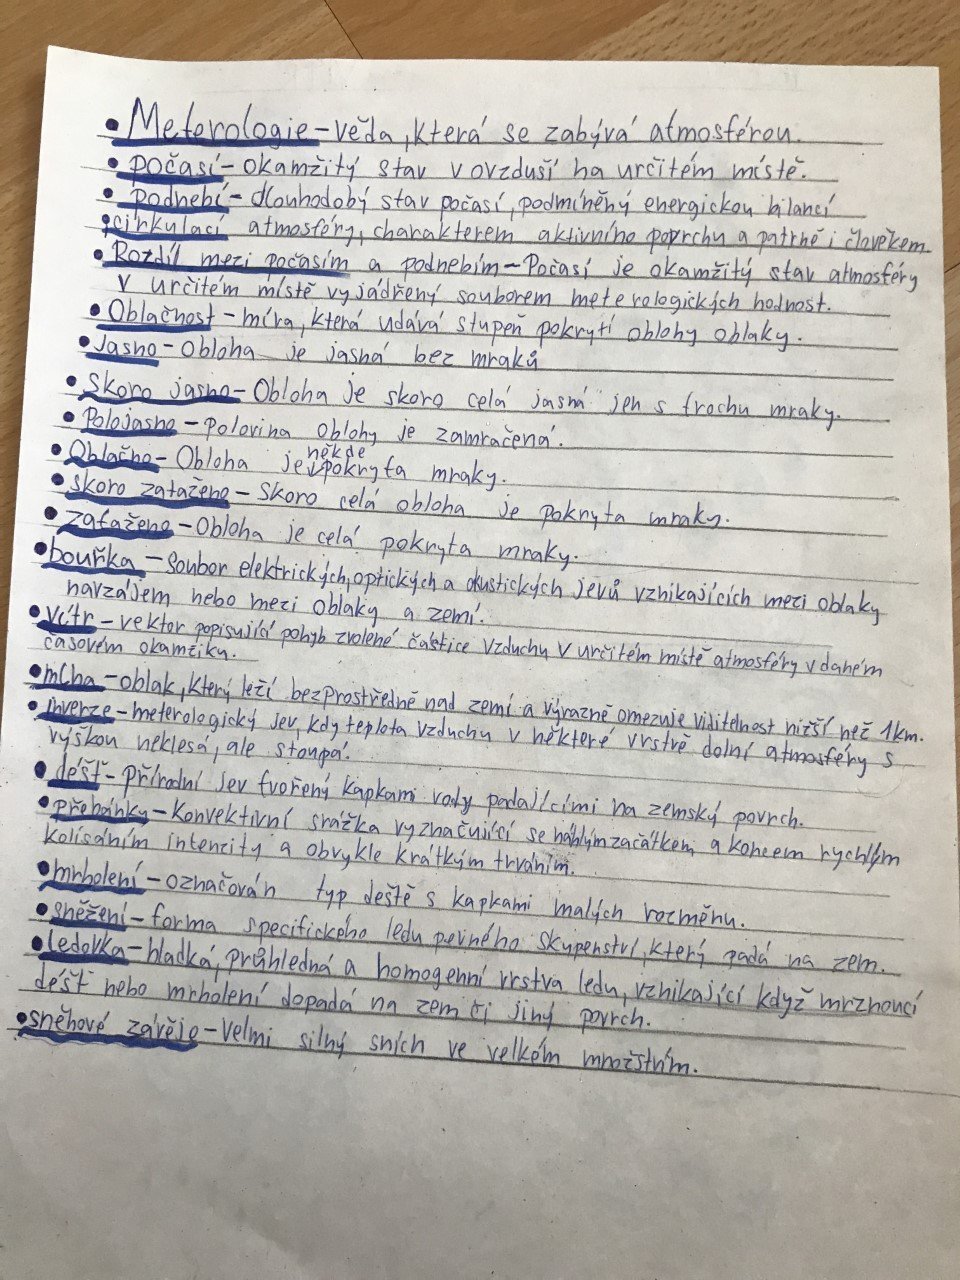 • Meterologie - věda, která se zabývá atmosférou.
• počasí - okamžitý stav v ovzduší na určitém místě.
• Podnebí - dlouhodobý stav počasí, podmíněný energickou bilancí
cirkulací atmosféry, charakterem aktivního povrchu a patrně i člověkem
• Rozdíl mezi počasím a podnebím - Počasí je okamžitý stav atmosféry
v určitém místě vyjádřený souborem meterologických hodnost.
• Oblačnost - míra, která udává stupeň pokrytí oblohy oblaky.
• Jasno - Obloha je jasná bez mraků
• Skoro jasno - Obloha je skoro celá jasná jen s trochu mraky.
• Polojasno - polovina oblohy je zamračená.
• Oblačno - Obloha je někde pokryta mraky.
• skoro zataženo - Skoro celá obloha je pokryta mraky.
• zataženo - Obloha je celá pokryta mraky.
• bouřka - Soubor elektrických, optických a akustických jevů vznikajících mezi oblaky
navzájem nebo mezi oblaky a zemí.
• Vítr - vektor popisující pohyb zvolené částice vzduchu v určitém místě atmosféry v daném
časovém okamžiku.
• mlha - oblak, který leží bezprostředně nad zemí a výrazně omezuje viditelnost nižší než 1km.
• inverze - meterologický jev, kdy teplota vzduchu v některé vrstvě dolní atmosféry s
výškou neklesá, ale stoupá.
• déšť - přírodní jev tvořený kapkami vody padajícími na zemský povrch.
• přeháňky - konvektivní srážka vyznačující se náhlým začátkem a koncem rychlým
kolísáním intenzity a obvykle krátkým trváním.
• mrholení - označován typ deště s kapkami malých rozměnu.
• sněžení - forma specifického ledu pevného skupenství, který padá na zem.
• ledovka - hladká, průhledná a homogenní vrstva ledu, vznikající když mrznoucí
déšť nebo mrholení dopadá na zem či jiný povrch.
• sněhové závěje - Velmi silný sních ve velkém množstvím.